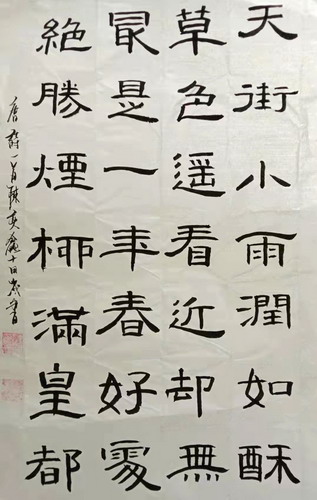 天街小雨潤如酥
草色遥看近却無
最是一年春好處
絶勝煙柳滿皇都
唐詩一首
書